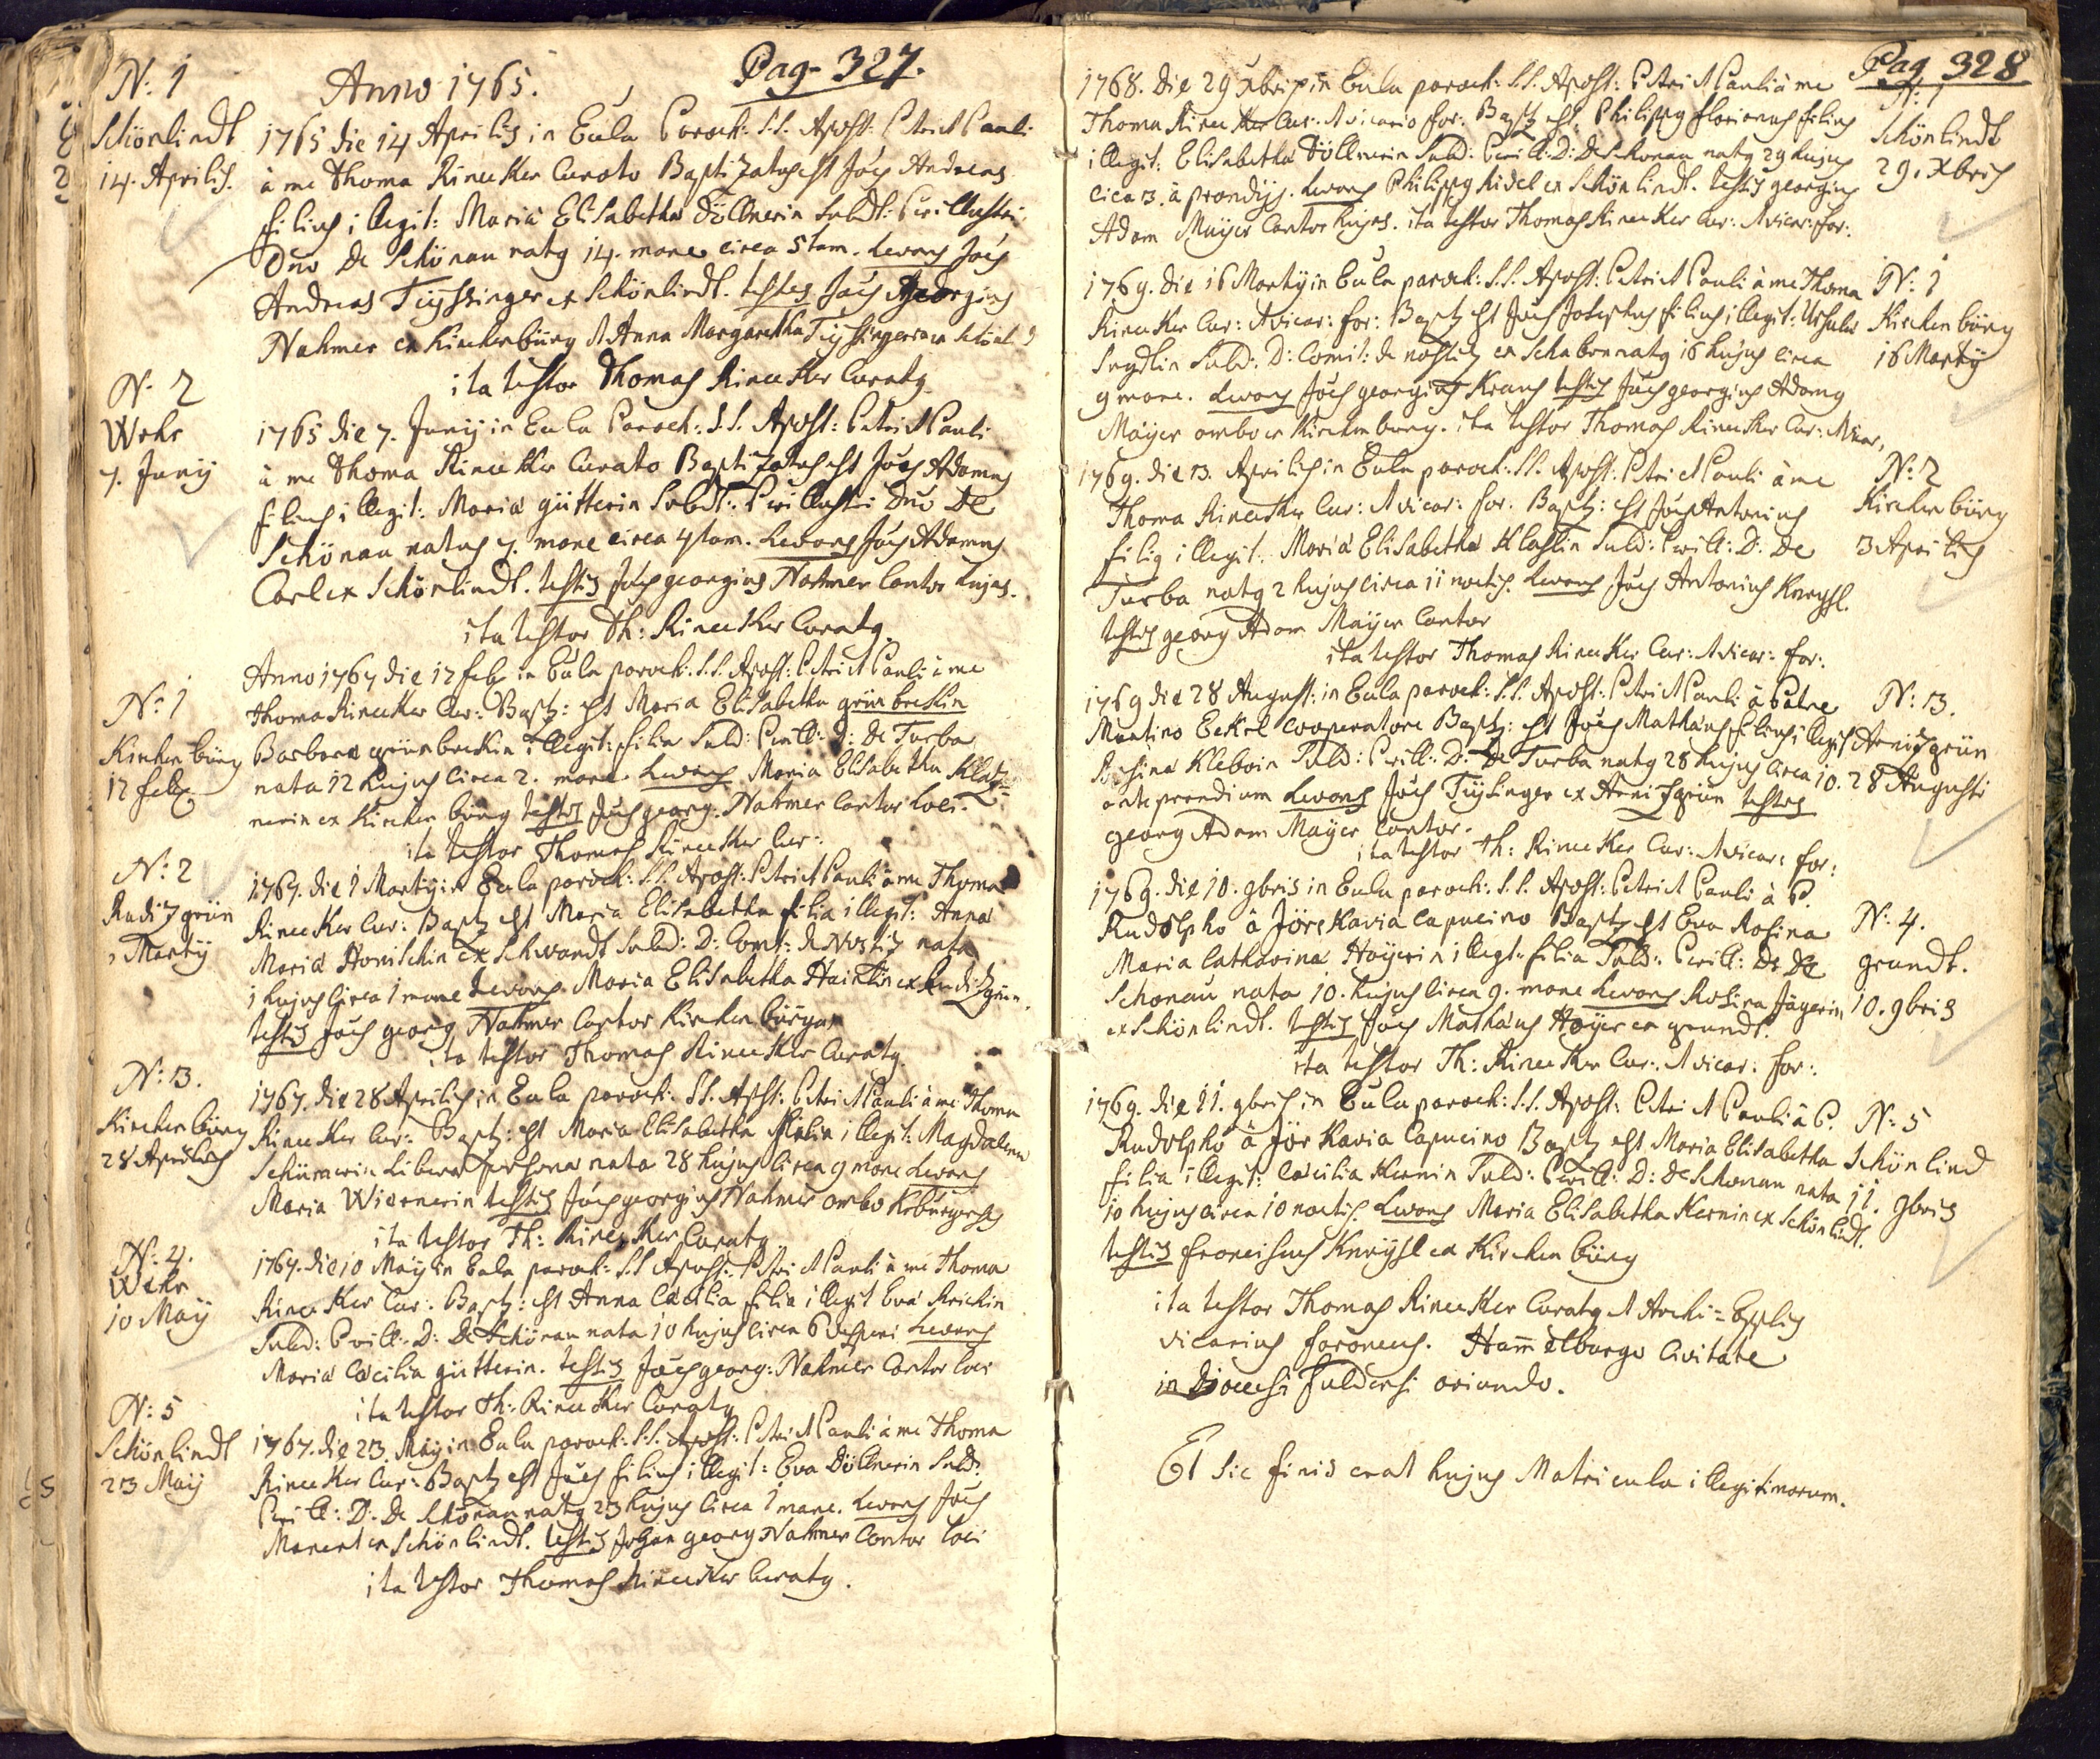 Pag. 327.
N: 1
Anno 1765.
Schönlindt
14. Aprilis.
1765 die 14 Aprilis in Eula Paroch: S.S. Apost: Petri et Pauli
à me Thoma Rinecker Curato Baptizatus est Joes Andreas
filius illegit: Maria Elisabetha Döllnerin Subdt: Perillustri
Dno De Schönau natg 14. mane circa 5tam. Levans Joes
Andreas Tüssinger ex Schönlindt. testes Joes Georgius
Nahmer ex Kirchenbürg et Anna Margaretha
ita testor Thomas Rinecker Curatg
N. 2
Wehr
7. Junij
1765 die 7. Junij in Eula Paroch: S.S. Apost: Petri et Pauli
à me Thoma Rinecker Curato Baptizatus est Joes Adamus
filius illegit: Maria gütterin Subdt: Perillustri Dno De
Schönau natus 7. mane circa 4tam. Levans Joes Adamus
Carl ex Schönlindt. testis Joes georgius Nahmer Cantor hujas.
ita testor Th: Rinecker Curatg.
N: 1
Kirchenbürg
12 feb
Anno 1767 die 12 feb in Eula paroch: S.S. Apost: Petri et Pauli à me
Thoma Rinecker Cur: Baptz: est Maria Elisabetha grünbeckin
Barbara grünbeckin illegit: filia Subd: Perill: D: De Turba
nata 12 hujus circa 2. mane. Levans Maria Elisabetha
nerin ex Kirchenbürg testis Joes georg. Nahmer Cantor loci.
ita testor Thomas Rinecker Cur:
N: 2
Rudizgrün
1 Martij
1767. die 1 Martij in Eula paroch: S.S. Apost: Petri et Pauli à me Thoma
Rinecker Cur: Baptz est Maria Elisabetha filia illegit: Anna
Maria Honischin ex Schwandt Subd: D: Comit: de Nostiz nata
1 hujus circa 1 mane Levans Maria Elisabetha Hainlin ex Rudizgrün.
testis Joes georg Nahmer Cantor Kirchenbürgas
ita testor Thomas Rinecker Curatg.
N: 3.
Kirchenbürg
28 Aprilis
1767. die 28 Aprilis in Eula paroch: S.S. Apost: Petri et Pauli à me Thoma
Rinecker Cur: Baptz: est Maria Elisabetha filia illegit: Magdalena
Schürmerin Libera persona nata 28 hujus circa 9 mane Levans
Maria Wiernerin testis Joes georgius Nahmer ambo
ita testor Th: Rinecker Curatg
N: 4.
Wehr
10 Maij
1767. die 10 Maij in Eula paroch: S.S Apost: Petri et Pauli à me Thoma
Rinecker Cur: Baptz: est Anna Cæcilia filia illegit Eva Strickin
Subd: Perill: D: De Schönau nata 10 hujus circa 6 vesperi Levans
Maria Cæcilia gütterin. testis Joes georg: Nahmer Cantor loci
ita testor Th: Rinecker Curatg
N: 5
Schönlindt
23 Maij
1767. die 23. Maij in Eula paroch: S.S. Apost: Petri et Pauli à me Thoma
Rinecker Cur: Baptz est Joes filius illegit: Eva Döllnerin Subd:
Perill: D: De Schönau natg 23 hujus circa 1 mane. Levans Joes
ex Schönlindt. testis Johan georg Nahmer Cantor loci
ita testor Thomas Rinecker Curatg.
Pag 328
N: 1
Schönlindt
29. Xbris
1768. die 29 Xbris in Eula paroch: S.S. Apost: Petri et Pauli à me
Thoma Rinecker Cur: et vicario for: Baptz est Philippg florianus filius
illegit: Elisabetha Döllnerin Subd: Perill: D: De Schonau natg 29 hujus
circa 3. à prandijs. Levans Philippg Ridel ex Schönlindt. testis georgius
Adam Maijer Cantor hujas. ita testor Thomas Rinecker Cur: et vicar: for:
N: 1
Kirchenbürg
16 Martij
1769. die 16 Martij in Eula paroch: S.S. Apost: Petri et Pauli à me Thoma
Rinecker Cur: et vicar: for: Baptz est Joes Josephus filius illegit: Ursula
Subd: D: Comit: de nostiz ex natg 16 hujus circa
9 mane. Levans Joes georgius Kraus testis Joes georgius Adamg
Maijer ambo ex Kirchenbürg. ita testor Thomas Rinecker Cur: et vicar,
N: 2
Kirchenbürg
3 Aprilis
1769. die 3. Aprilis in Eula paroch: S.S. Apost: Petri et Pauli à me
Thoma Rinecker Cur: et vicar: for: Baptz: est Joes Antonius
filig illegit: Maria Elisabetha Klaslin Subd: Perill: D: De
Turba natg 2 hujus circa 11 noctis. Levans Joes Antonius Kneysl.
testis georg Adam Maijer Cantor
ita testor Thomas Rinecker Cur: et vicar: for:
N: 3.
Arnizgrün
28 Augusti
1769 die 28 August: in Eula paroch: S.S. Apost: Petri et Pauli à Patre
Martino Eckel Cooperatore Baptz: est Joes Mathæus filius illegit
Rosina Kleboin Subd: Perill: D: De Turba natg 28 hujus circa 10.
ante prandium Levans Joes Tüsinger ex Arnizgrün testis
georg Adam Maijer Cantor.
ita testor Th: Rinecker Cur: et vicar: for:
N: 4.
grundt.
10. 9bris
1769. die 10. 9bris in Eula paroch: S.S. Apost: Petri et Pauli à P.
Rudolpho à Jörckavia Capucino Baptz est Eva Rosina
Maria Catharina Hoijerin illegt: filia Subd: Perill: D: De
Schonau nata 10. hujus circa 9. mane Levans Rosina Jägerin
ex Schönlindt. testis Joes Mathæus Hoijer ex grundt.
ita testor Th: Rinecker Cur: et vicar: for:
N: 5
Schönlind
11. 9bris
1769. die 11. 9bris in Eula paroch: S.S. Apost: Petri et Pauli à P.
Rudolpho à Jörkavia Capucino Baptz est Maria Elisabetha
filia illegit: Cæcilia Kernin Subd: Perill: D: De Schonau nata
10 hujus circa 10 noctis. Levans Maria Elisabetha Kernin ex Schönlindt.
testis franciscus Kneysl ex Kirchenbürg
ita testor Thomas Rinecker Curatg et Archi-Epplis
vicarius foraneus. Ham̅elburgo Civitate
in Diœcesi fuldensi oriundo.
Et sic finis erat hujus Matricula illegitimorum.